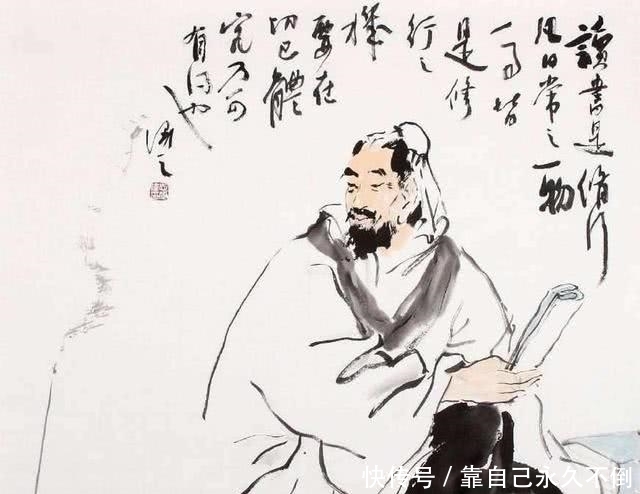 讀書是脩行
日常之一物
一事皆
是修
行之
機
要在
切己體
乃可
有得也
快传号 / 靠自己永久不倒